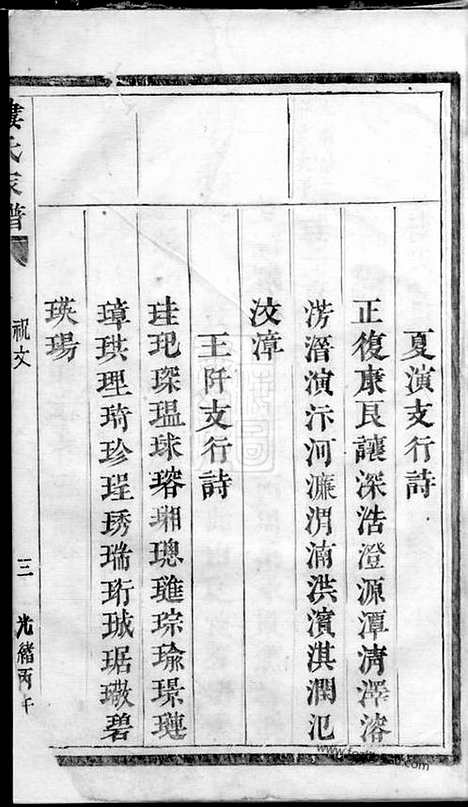 夏演支行詩
正復康艮讓深浩澄源潭濟澤濬
涝潛演汴河濂渭湳洪濱淇潤氾
汶漳
王阡支行詩
珪玘琛瑥球瑢瑚璁璡琮瑜璟璉
璋琪理琦珍珵琇瑞珩珹琚璥碧
瑛瑒
氏家譜
祝文
三
光緒丙午